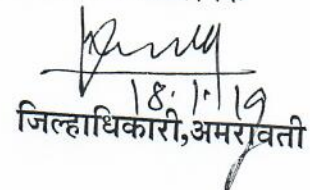 18.1.19
जिल्हाधिकारी,अमरावती